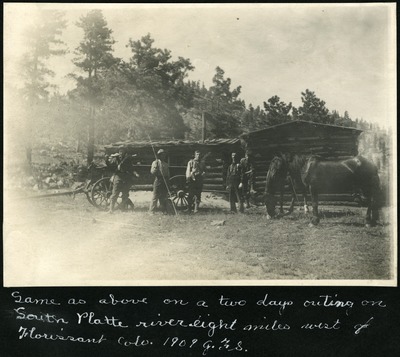 Same as above on a two days outing on
South Platte river eight miles west of
Florissant Colo. 1909 G.F.S.